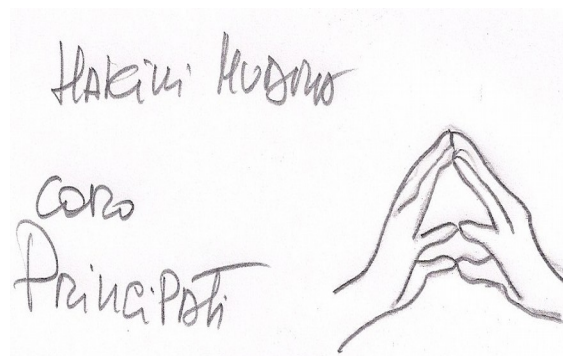 HAKiNi MUDRA
CORO
PRiNCiPATi